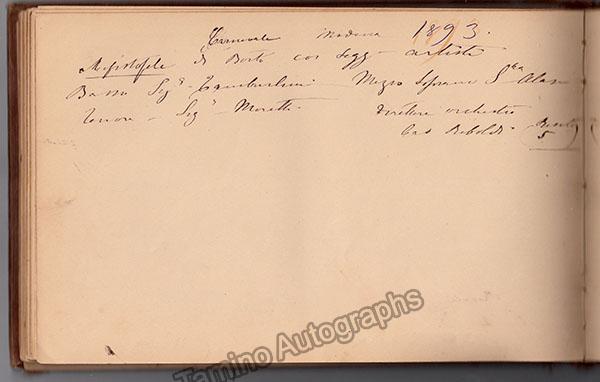 Carnevale Modena 1893.
Mefistofele di Boito coi segg artisti
Basso Sigr Tamburlini Mezzo Soprano Sra
Tenore - Sigr Moretti Direttore orchestra
Cav Riboldi 5
Tamino Autographs